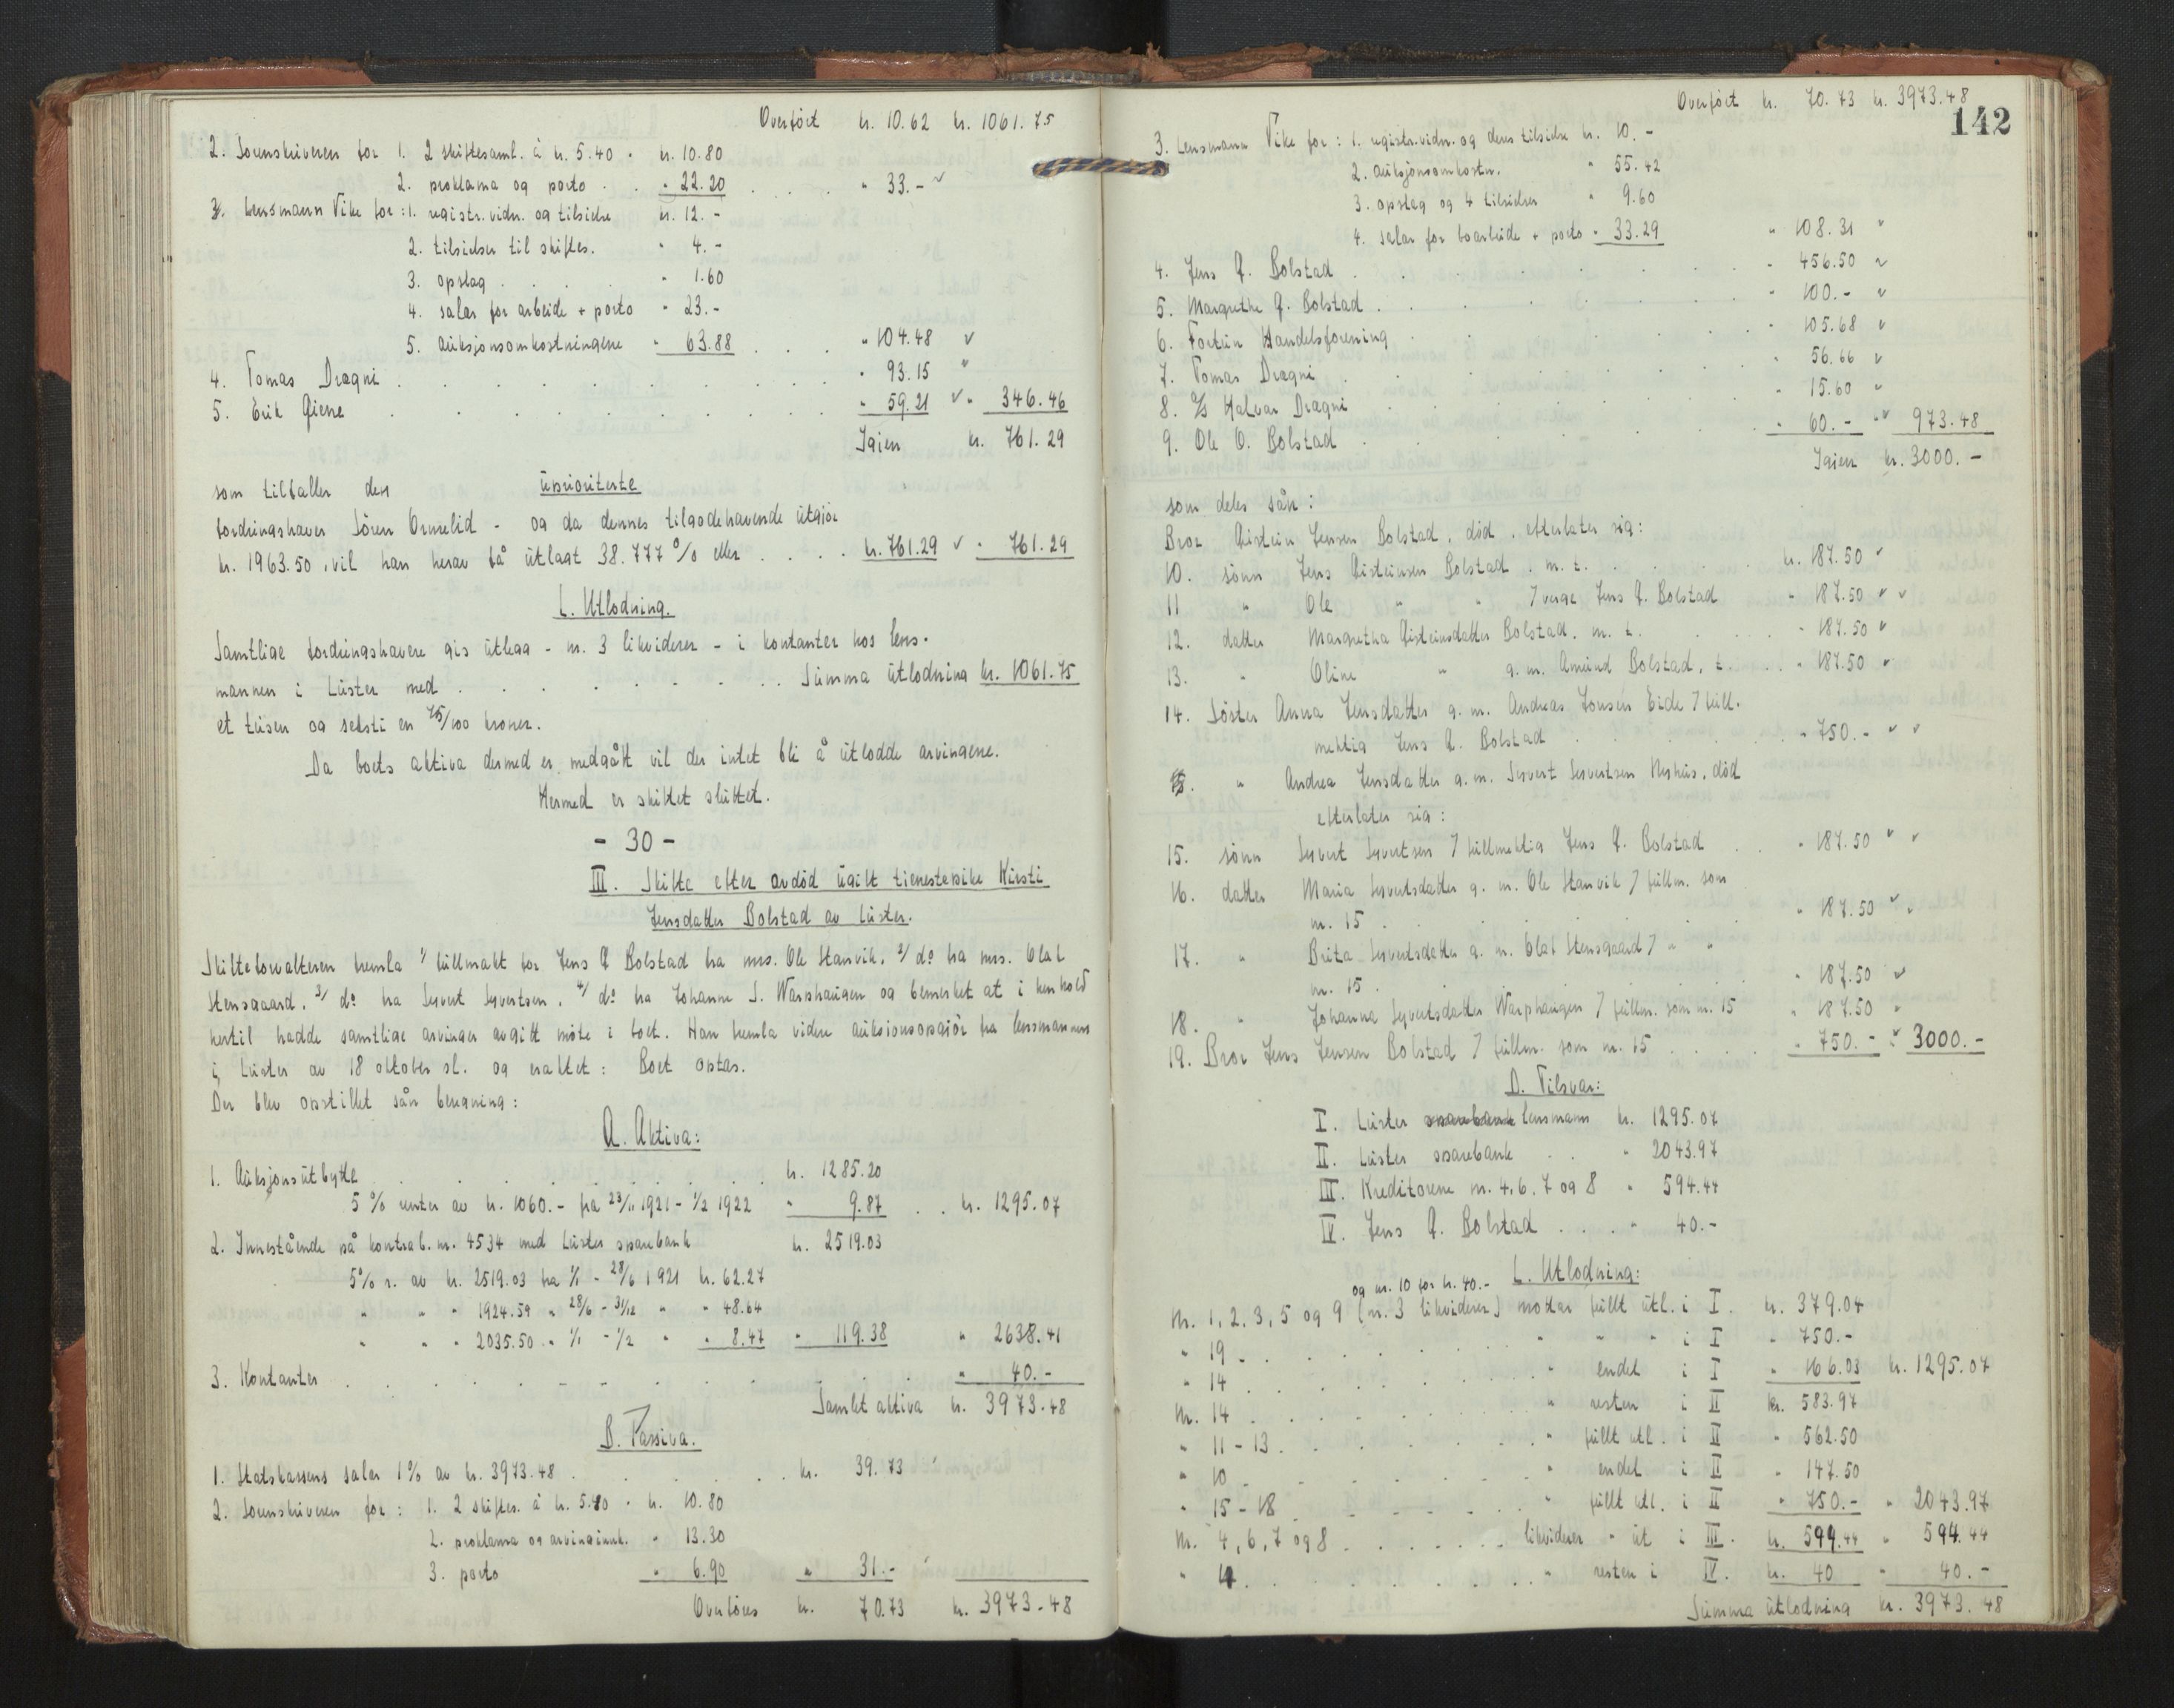 Overført kr. 10.62 kr. 1061.75
2. Sorenskriveren for 1. 2 skiftesaml. à kr. 5.40 = kr. 10.80
2. proklama og porto . . " 22.20 . . . " 33.-
3. Lensmann Vike for: 1. registr. vidn. og tilsidse kr. 12.-
2. tilsidser til skiftes. " 4.-
3. opslag . . . . " 1.60
4. salær for arbeide + porto " 23.-
5. auksjonsomkostningene " 63.88 . . . " 104.48
4. Tomas Drægni . . . . " 93.15
5. Erik Gjerne . . . . " 59.21 " 346.46
Igjen kr. 761.29
som tilfaller den uprioriterte
fordringshaver Sören Ormelid - og da dennes tilgodehavende utgjör
kr. 1963.50, vil han herav få utlagt 38.777 % eller . . . . kr. 761.29 " 761.29
C. Utlodning.
Samtlige fordringshavere gis utlegg - nr. 3 likviderer - i kontanter hos lens-
mannen i Luster med . . . . Summa utlodning kr. 1061.75
et tusen og seksti en 75/100 kroner.
Da boets aktiva dermed er medgått vil der intet bli å utlodde arvingene.
Hermed er skiftet sluttet.
- 30 -
III. Skifte efter avdöd ugift tjenestepike Kirsti
Jensdatter Bolstad av Luster.
Skifteforvalteren fremla 1/ fullmakt for Jens Q. Bolstad fra mrs. Ole Stanvik, 2/ do fra mrs. Olaf
Stensgaard, 3/ do fra Syvert Syvertsen, 4/ do fra Johanne S. Warphaugen og bemerket at i henhold
hertil hadde samtlige arvinger avgitt möte i boet. Han fremla videre auksjonsopgjör fra lensmannen
i Luster av 18 oktober sl. og eraktet: Boet optas.
Der blev opstillet sån beregning:
A. Aktiva:
1. Auksjonsutbytte . . . . kr. 1285.20
5 % renter av kr. 1060.- fra 23/11 1921 - 1/2 1922 " 9.87 . . kr. 1295.07
2. Innestående på kontrab. nr. 4534 med Luster sparebank kr. 2519.03
5% r. av kr. 2519.03 fra 1/1 - 28/6 1921 kr. 62.27
" " " 1924.59 " 28/6 - 31/12 " " 48.64
" " " 2035.50 " 1/1 - 1/2 " " 8.47 " 119.38 " 2638.41
3. Kontanter . . . . " 40.-
Samlet aktiva kr. 3973.48
B. Passiva.
1. Statskassens salær 1% av kr. 3973.48 . . . . kr. 39.73
2. Sorenskriveren for: 1. 2 skiftes. à kr. 5.40 = kr. 10.80
2. proklama og arvinginnk. " 13.30
3. porto " 6.90 " 31.-
Overføres kr. 70.73 kr. 3973.48
Overført kr. 70.73 kr. 3973.48
142
3. Lensmann Vike for: 1. registr. vidn. og deres tilsidse kr. 10.-
2. auksjonsomkostn. " 55.42
3. opslag og 4 tilsidser " 9.60
4. salær for boarbeide + porto " 33.29 " 108.31
4. Jens Q. Bolstad . . . . " 456.50
5. Margrethe Q. Bolstad . . . . " 100.-
6. Fortun Handelsforening . . . . " 105.68
7. Tomas Drægni . . . . " 56.66
8. Halvar Drægni . . . . " 15.60
9. Ole O. Bolstad . . . . " 60.- " 973.48
Igjen kr. 3000.-
som deles sån:
Bror Qistein Jensen Bolstad, död, efterlater sig:
10. sönn Jens Qisteinsen Bolstad, m. t. . . . kr. 187.50
11 " Ole " " / verge Jens Q. Bolstad " 187.50
12. datter Margretha Qisteinsdatter Bolstad, m. t. . . . " 187.50
13. " Oline " g. m. Amund Bolstad, t. . . . " 187.50
14. Söster Anna Jensdatter g. m. Andreas Jonsen Eide / full-
mektig Jens Q. Bolstad . . . . " 750.-
" Andrea Jensdatter g. m. Syvert Syvertsen Nyhus, död
efterlater sig:
15. sönn Syvert Syvertsen / fullmektig Jens Q. Bolstad . . " 187.50
16. datter Maria Syvertsdatter g. m. Ole Stanvik / fullm. som
nr. 15 . . . . " 187.50
17. " Brita Syvertsdatter g. m. Olaf Stensgaard / " "
nr. 15 . . . . " 187.50
18. " Johanna Syvertsdatter Warphaugen / fullm. som nr. 15 " 187.50
19. Bror Jens Jensen Bolstad / fullm. som nr. 15 . . . . " 750.- " 3000.-
D. Tilsvar:
I. Luster sparebank lensmann kr. 1295.07
II. Luster sparebank . . " 2043.97
III. Kreditorene nr. 4, 6, 7 og 8 " 594.44
IV. Jens Q. Bolstad . . . " 40.-
C. Utlodning:
og nr. 10 for kr. 40.-
Nr. 1, 2, 3, 5 og 9 (nr. 3 likviderer) mottar fullt utl. i I. kr. 379.04
" 19 . . . . " " " i I " 750.-
" 14 . . . . " endel i I " 166.03 kr. 1295.07
Nr. 14 . . . . " resten i II kr. 583.97
" 11-13 . . . . " fullt utl. i II " 562.50
" 10 . . . . " endel i II " 147.50
" 15-18 . . . . " fullt utl. i II " 750.- " 2043.97
Nr. 4, 6, 7 og 8 . . . . likviderer " ut i III. kr. 594.44 " 594.44
" 4 . . . . " resten i IV. kr. 40 " 40.-
Summa utlodning kr. 3973.48